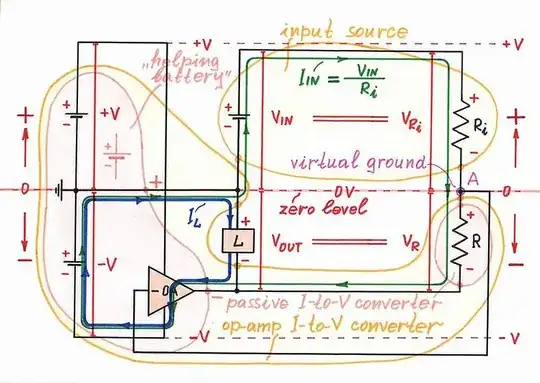 input source
+V
+V
„helping
battery"
IIN = VIN
Ri
+
-
+V
+
-
+
-
+
-
VIN
VRi
+
Ri
-
+
+
virtual ground
A
0
0V
0
zero level
IL
+
L
-
VOUT
VR
+
R
-
+
-
-V
-
-
- OA
-
passive I-to-V converter
op-amp I-to-V converter
-V
-V